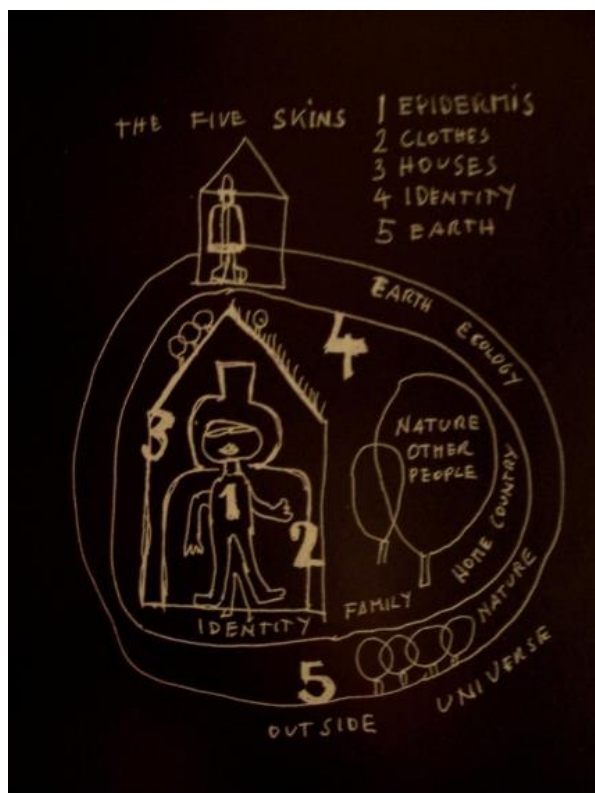 THE FIVE SKINS
1 EPIDERMIS
2 CLOTHES
3 HOUSES
4 IDENTITY
5 EARTH
EARTH ECOLOGY
4
3
NATURE
OTHER
PEOPLE
1
2
HOME COUNTRY
IDENTITY
FAMILY
NATURE
5
UNIVERSE
OUTSIDE